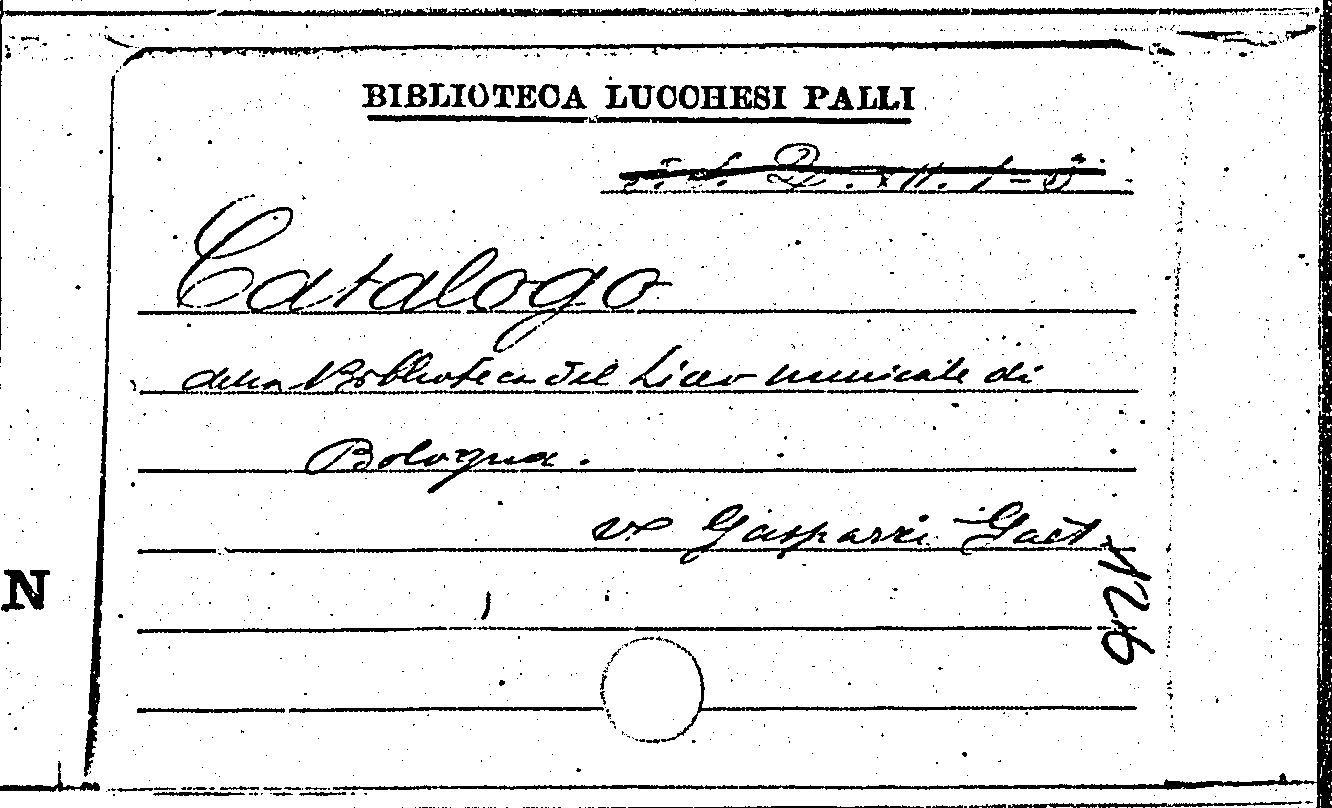 BIBLIOTECA LUCCHESI PALLI
Catalogo
della Biblioteca del Liceo musicale di
Bologna.
Gasparri Gaet.
N
126